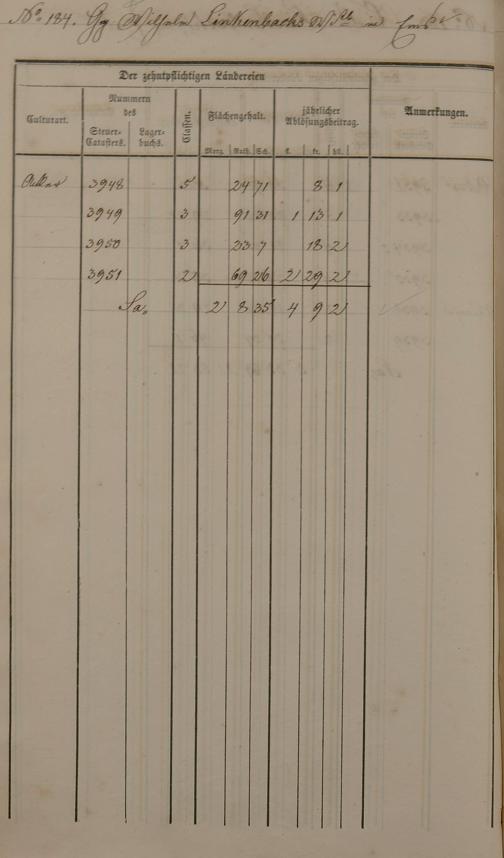 No. 184. Gg Wilhelm Linkenbachs Wtb in Ems
Der zehntpflichtigen Ländereien
Culturart.
Nummern
des
Steuer-
Catasters.
Lager-
buchs.
Classen.
Flächengehalt.
Morg. Ruth. Sch.
jährlicher
Ablösungsbeitrag.
fl. kr. hll.
Anmerkungen.
Acker 3948 5 24 71 8 1
3949 3 91 31 1 13 1
3950 3 23 7 18 2
3951 2 69 26 2 29 2
Sa. 2 8 35 4 9 2